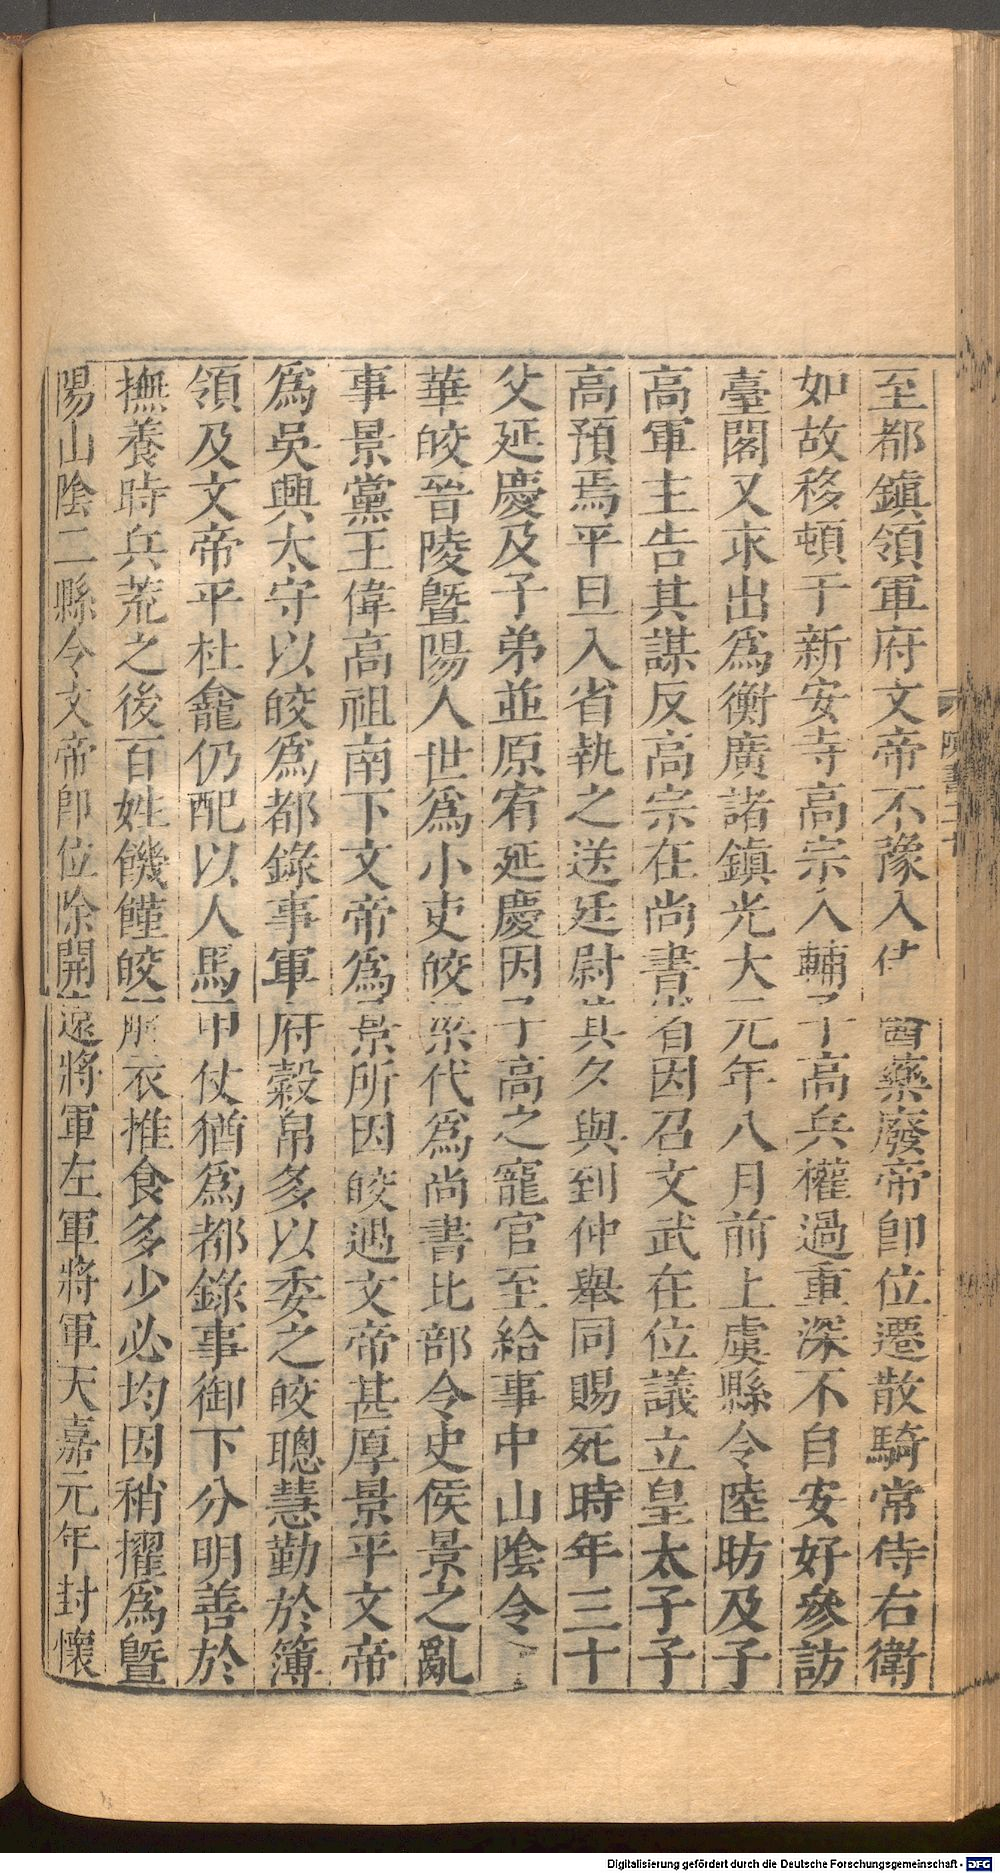 至都鎮領軍府文帝不豫入侍醫藥廢帝即位遷散騎常侍右衛
如故移頓于新安寺高宗入輔子高兵權過重深不自安好參訪
臺閣又求出為衡廣諸鎮光大元年八月前上虞縣令陸昉及子
高軍主告其謀反高宗在尚書省因召文武在位議立皇太子子
高預焉平旦入省執之送廷尉其夕與到仲舉同賜死時年三十
父延慶及子弟並原宥延慶因子高之寵官至給事中山陰令
華皎晉陵暨陽人世為小吏皎梁代為尚書比部令史侯景之亂
事景黨王偉高祖南下文帝為景所囚皎遇文帝甚厚景平文帝
為吳興太守以皎為都錄事軍府穀帛多以委之皎聰慧勤於簿
領及文帝平杜龕仍配以人馬甲仗猶為都錄事御下分明善於
撫養時兵荒之後百姓饑饉皎解衣推食多少必均因稍擢為暨
陽山陰二縣令文帝即位除開遠將軍左軍將軍天嘉元年封懷
陳書二十
Digitalisierung gefördert durch die Deutsche Forschungsgemeinschaft - DFG